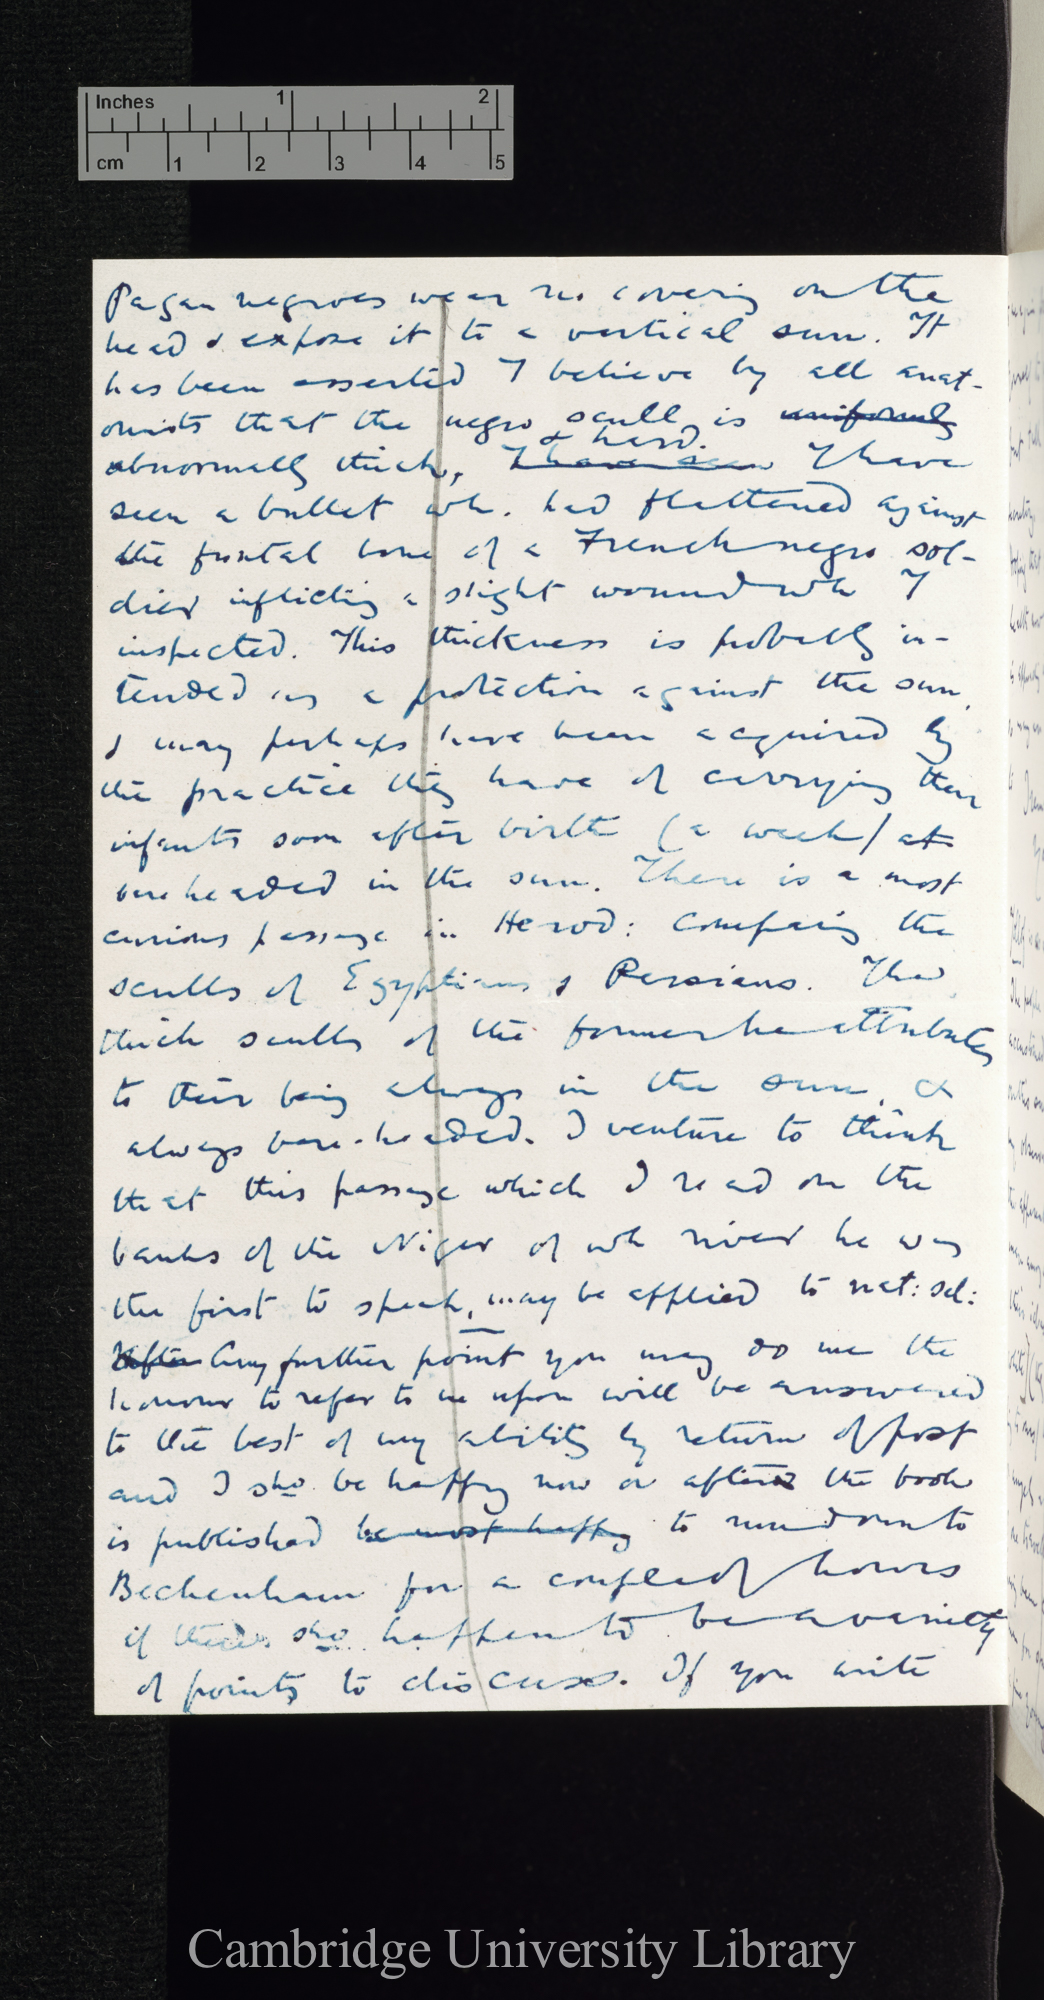 Inches 1 2
cm 1 2 3 4 5
Pagan negroes wear no covering on the
head & expose it to a vertical sun. It
has been asserted I believe by all anat-
omists that the negro scull is uniformly
& hard.
abnormally thick, I have seen I have
seen a bullet wh. had flattened against
the frontal bone of a French negro sol-
dier inflicting a slight wound wh I
inspected. This thickness is probably in-
tended as a protection against the sun,
& may perhaps have been acquired by
the practice they have of carrying their
infants soon after birth (a week) at
bareheaded in the sun. There is a most
curious passage in Herod: comparing the
sculls of Egyptians & Persians. The
thick sculls of the former he attributes
to their being always in the sun, &
always bare-headed. I venture to think
that this passage which I read on the
banks of the Niger of wh river he was
the first to speak, may be applied to nat: sel:
After Any further point you may do me the
honour to refer to me upon will be answered
to the best of my ability by return of post
and I shd. be happy now or after the book
is published be most happy to run down to
Beckenham for a couple of hours
if there shd. happen to be a variety
of points to discuss. If you write
Cambridge University Library